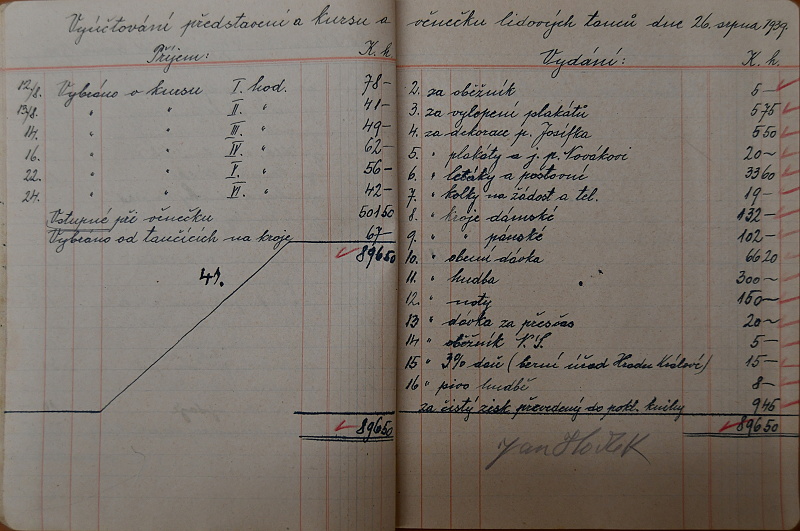 Vyúčtování představení a kursu a věnečku lidových tanců dne 26. srpna 1939.
Příjem: K. h
12/8. Vybráno o kursu I. hod. 78–
13/8. " " II. " 41–
14. " " III. " 49–
16. " " IV. " 62–
22. " " V. " 56–
24. " " VI. " 42–
Vstupné při věnečku 501 50
Vybráno od tančících na kroje 67–
896 50
41.
896 50
Vydání: K. h.
2. za oběžník 5–
3. za vylepení plakátů 5 75
4. za dekorace p. Josífka 5 50
5. " plakáty a j. p. Novákovi 20–
6. " letáky a poštovní 33 60
7. " kolky na žádost a tel. 19–
8. " kroje dámské 132–
9. " " pánské 102–
10. " obecní dávka 66 20
11. " hudba 300–
12. " noty 150–
13 " dávka za přesčas 20–
14 " oběžník 5–
15 " 3% daň (berní úřad Hradec Králové) 15–
16 " pivo hudbě 8–
za čistý zisk převedený do pokl. knihy 9 45
896 50
Jan